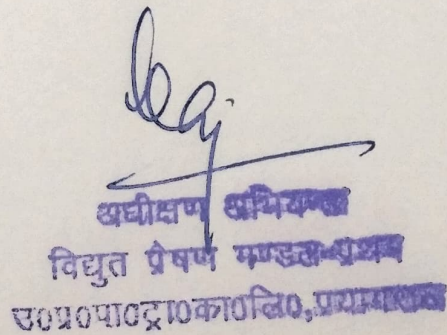 अधीक्षण अभियन्ता
विद्युत प्रेषण मण्डल-प्रथम
उ०प्र०पा०ट्रा०का०लि०, प्रयागराज